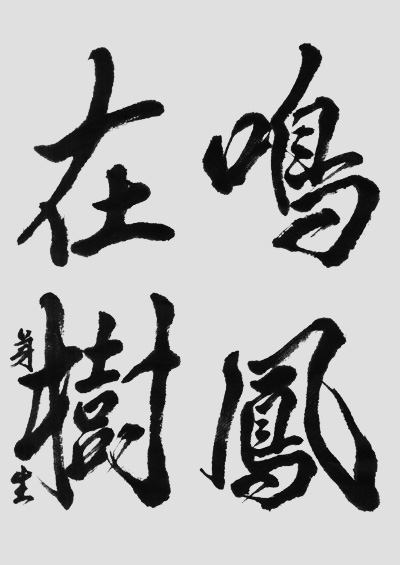 鳴鳳
在樹
芽生